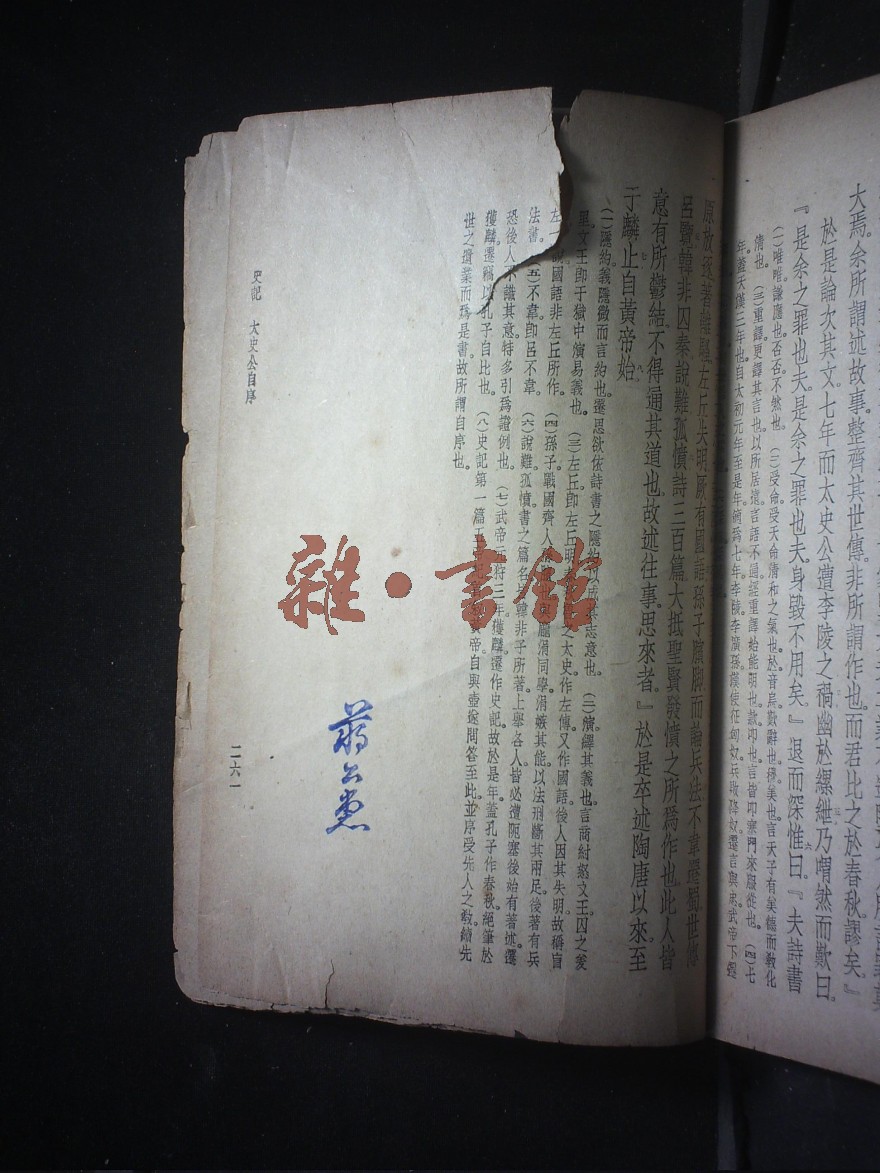 大焉余所謂述故事整齊其世傳非所謂作也而君比之於春秋謬矣。』
於是論次其文七年而太史公遭李陵之禍幽於縲紲乃喟然而歎曰。
『是余之罪也夫是余之罪也夫身毀不用矣。』退而深惟曰。『夫詩書
(一)唯唯謙應也否否不然也。 (二)受命受天命清和之氣也於音烏歎辭也穆美也言天子有美德而敎化
清也。 (三)重譯更譯其言也以所居遠言語不通經重譯給能明也款叩也言皆叩塞門來服從也。 (四)七
年蓋天漢三年也自太初元年至是年
原放逐著離騷左丘失明厥有國語孫子臏脚而論兵法不韋遷蜀世傳
呂覽韓非囚秦說難孤憤詩三百篇大抵聖賢發憤之所爲作也此人皆
意有所鬱結不得通其道也故述往事思來者。』於是卒述陶唐以來至
于麟止自黃帝始
(一)隱約義隱微而言約也遷思欲依詩書之隱約以成其志意也。 (二)演繹其義也言商紂怒文王囚之羑
里文王即于獄中演易義也。 (三)左丘卽左丘明 之太史作左傳又作國語後人因其失明故稱盲
左一說國語非左丘所作。 (四)孫子戰國齊人 龐涓同學涓嫉其能以法刑斷其兩足後著有兵
法書。 (五)不韋卽呂不韋。 (六)說難孤憤書之篇名 韓非子所著上舉各人皆必遭阨塞後始有著述遷
恐後人不識其意特多引爲證例也。 (七)武帝元狩三年獲麟遷作史記故於是年蓋孔子作春秋絕筆於
獲麟遷竊以孔子自比也。 (八)史記第一篇五 黃帝自與壺遂問答至此並序受先人之敎續先
世之遺業而爲是書故所謂自序也。
史記 太史公自序
二六一
雜·書館
蔣公惠